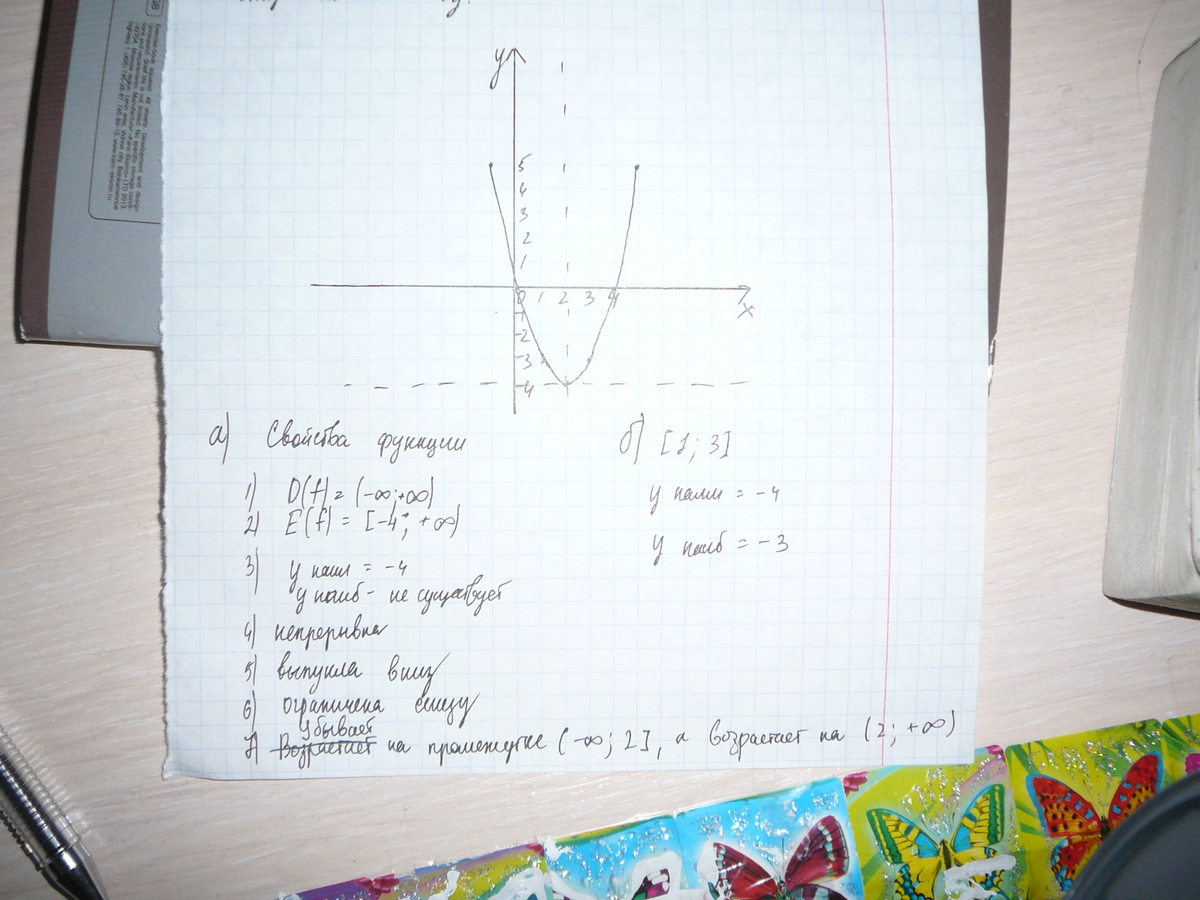 y
5
4
3
2
1
0 1 2 3 4
x
-1
-2
-3
-4
а) Свойства функции
1) D(f) = (-∞; +∞)
2) E(f) = [-4; +∞)
3) y наим = -4
y наиб - не существует
4) непрерывна
5) выпукла вниз
6) ограничена снизу
убывает
7) Возрастает на промежутке (-∞; 2], а возрастает на (2; +∞)
б) [1; 3]
y наим = -4
y наиб = -3